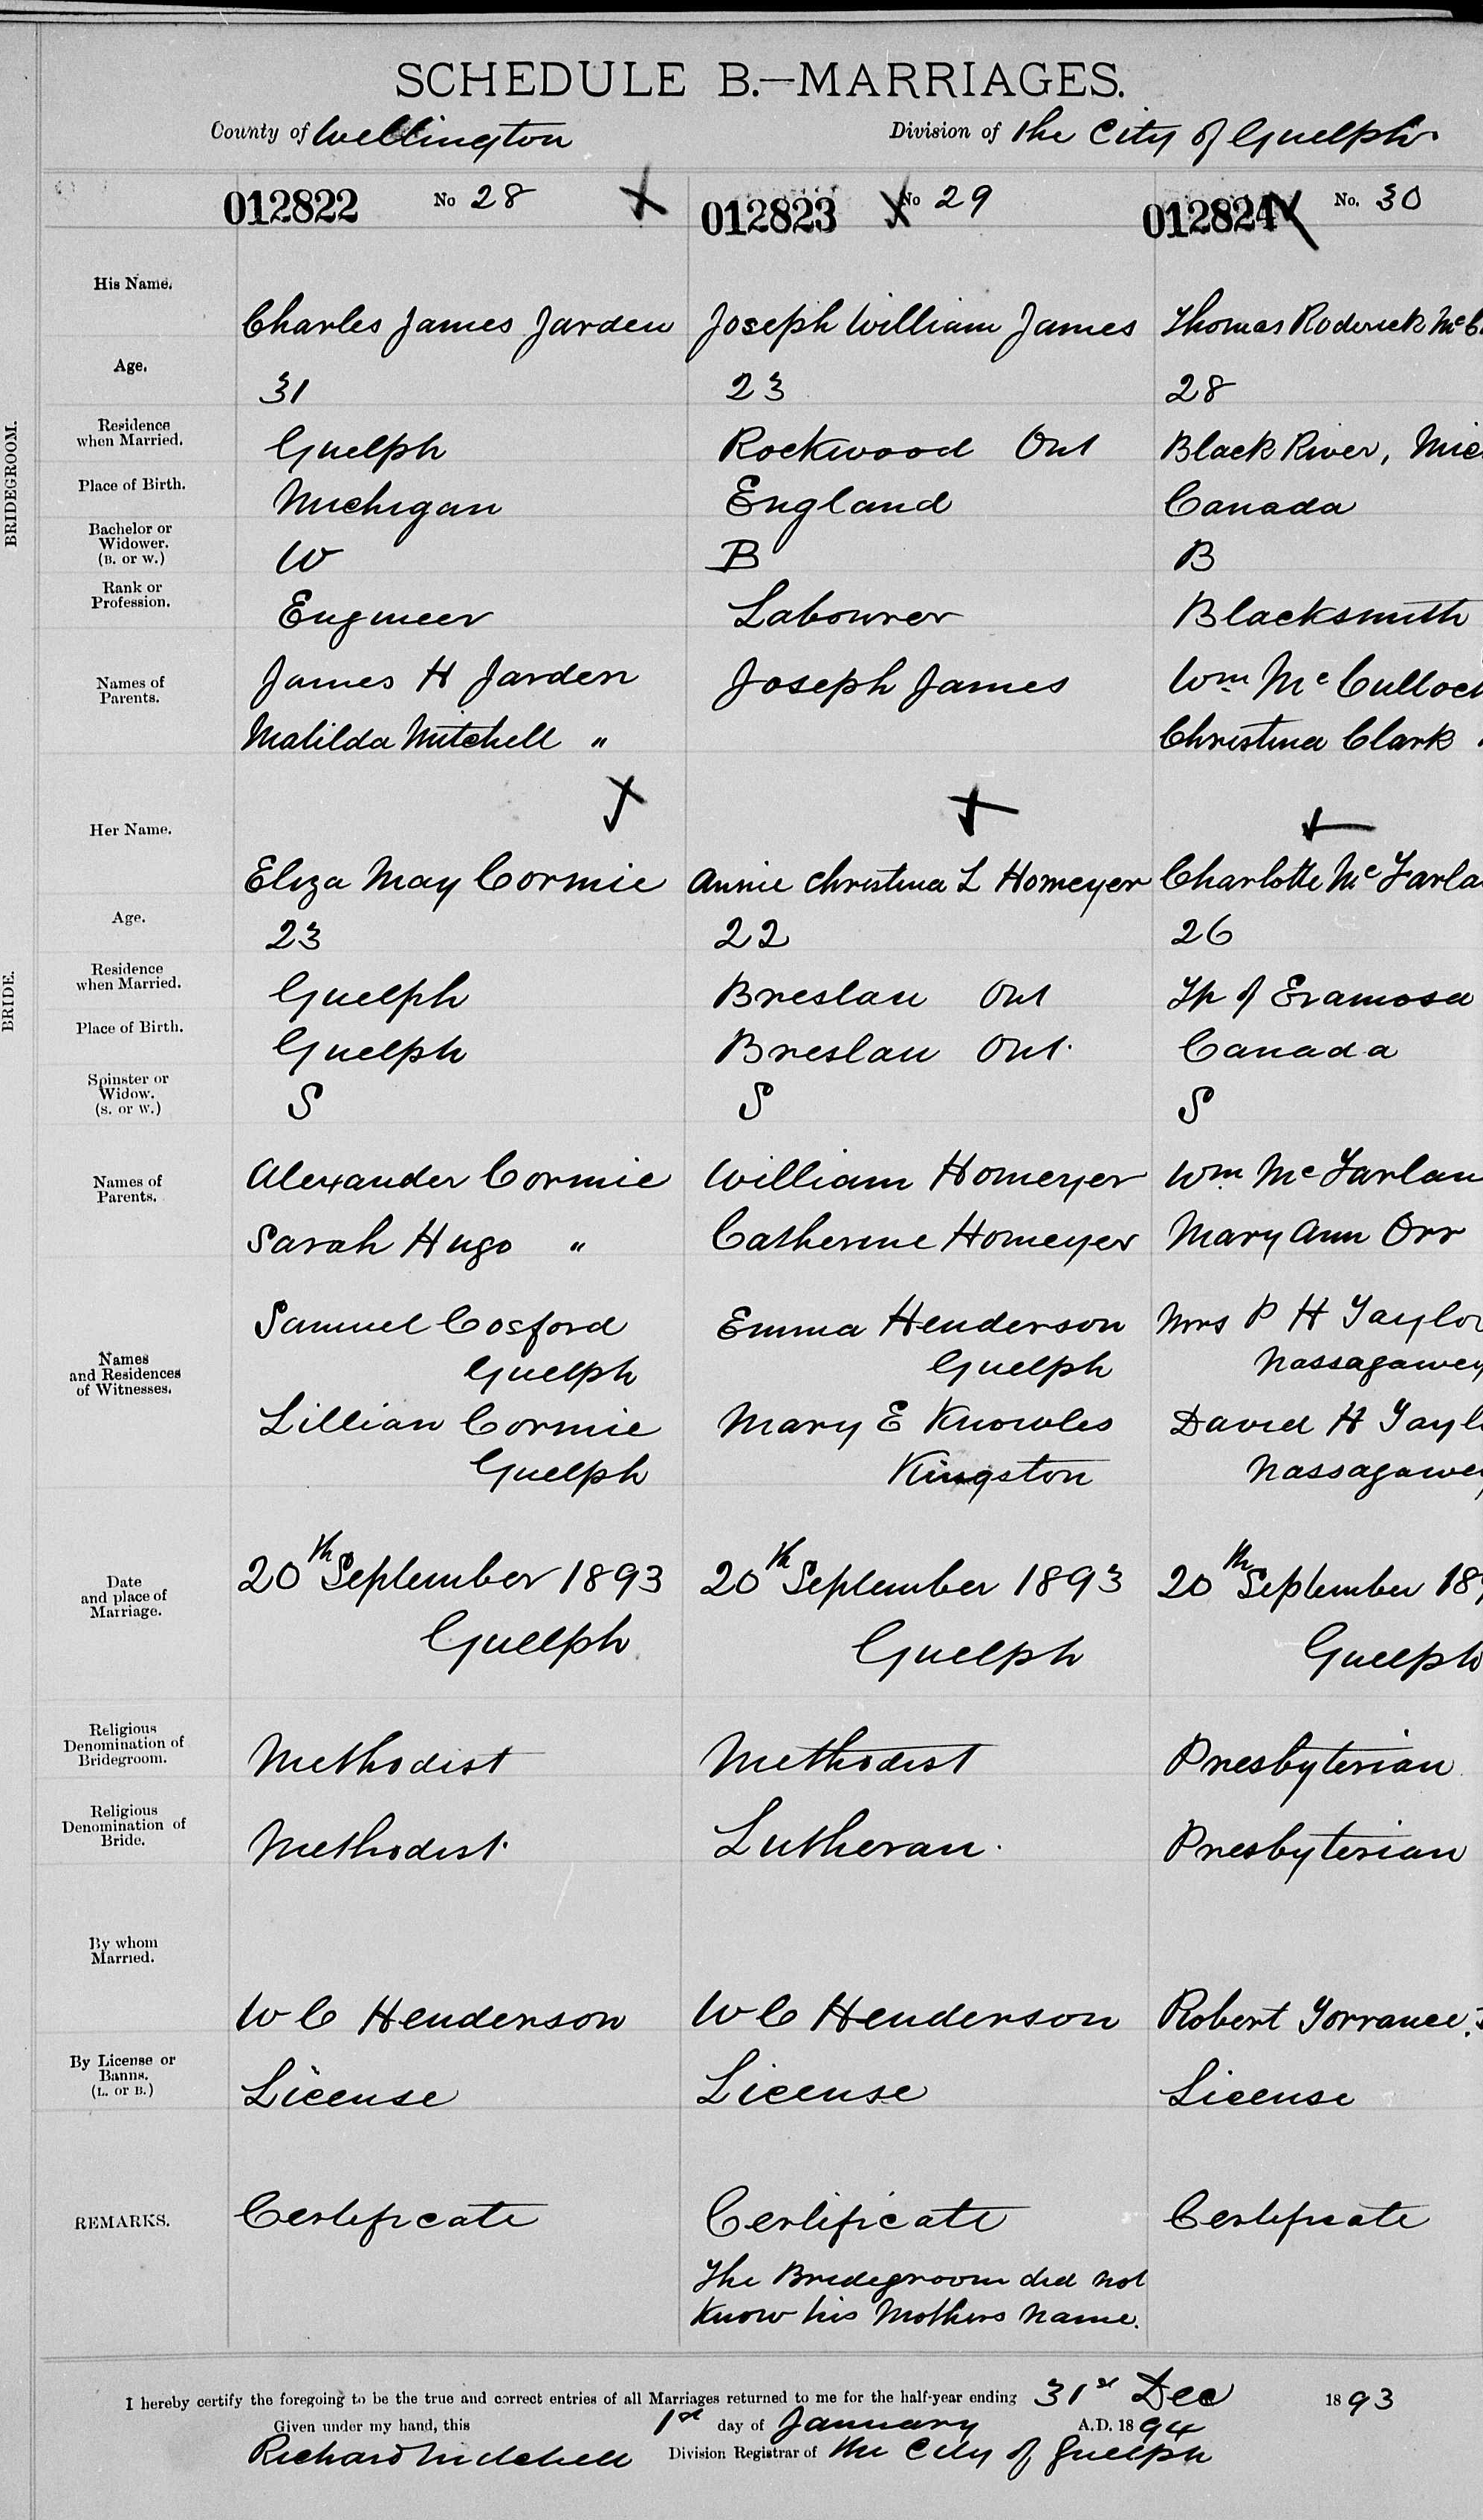 SCHEDULE B.—MARRIAGES.
County of Wellington Division of the City of Guelph.
012822 No 28 X 012823 No 29 X 012824 X No. 30
His Name. Charles James Jarden Joseph William James Thomas Roderick McC
Age. 31 23 28
Residence when Married. Guelph Rockwood Ont Black River, Mic
BRIDEGROOM.
Place of Birth. Michigan England Canada
Bachelor or Widower. (B. or W.) W B B
Rank or Profession. Engineer Labourer Blacksmith
Names of Parents. James H Jarden Joseph James Wm McCulloch
Matilda Mitchell " Christina Clark
Her Name. Eliza May Cormie Annie Christina L Homeyer Charlotte McFarla
Age. 23 22 26
Residence when Married. Guelph Breslau Ont Tp of Eramosa
BRIDE.
Place of Birth. Guelph Breslau Ont. Canada
Spinster or Widow. (S. or W.) S S S
Names of Parents. Alexander Cormie William Homeyer Wm McFarlan
Sarah Hugo " Catherine Homeyer Mary Ann Orr
Names and Residences of Witnesses. Samuel Cosford Emma Henderson Mrs P H Taylor
Guelph Guelph Nassagawey
Lillian Cormie Mary E Knowles David H Tayl
Guelph Kingston Nassagawey
Date and place of Marriage. 20th September 1893 20th September 1893 20th September 189
Guelph Guelph Guelph
Religious Denomination of Bridegroom. Methodist Methodist Presbyterian
Religious Denomination of Bride. Methodist Lutheran. Presbyterian
By whom Married. W C Henderson W C Henderson Robert Torrance
By License or Banns. (L. or B.) License License License
REMARKS. Certificate Certificate Certificate
The Bridegroom did not
know his Mothers name.
I hereby certify the foregoing to be the true and correct entries of all Marriages returned to me for the half-year ending 31st Dec 1893
Given under my hand, this 1st day of January A.D. 1894
Richard Mitchell Division Registrar of the City of Guelph